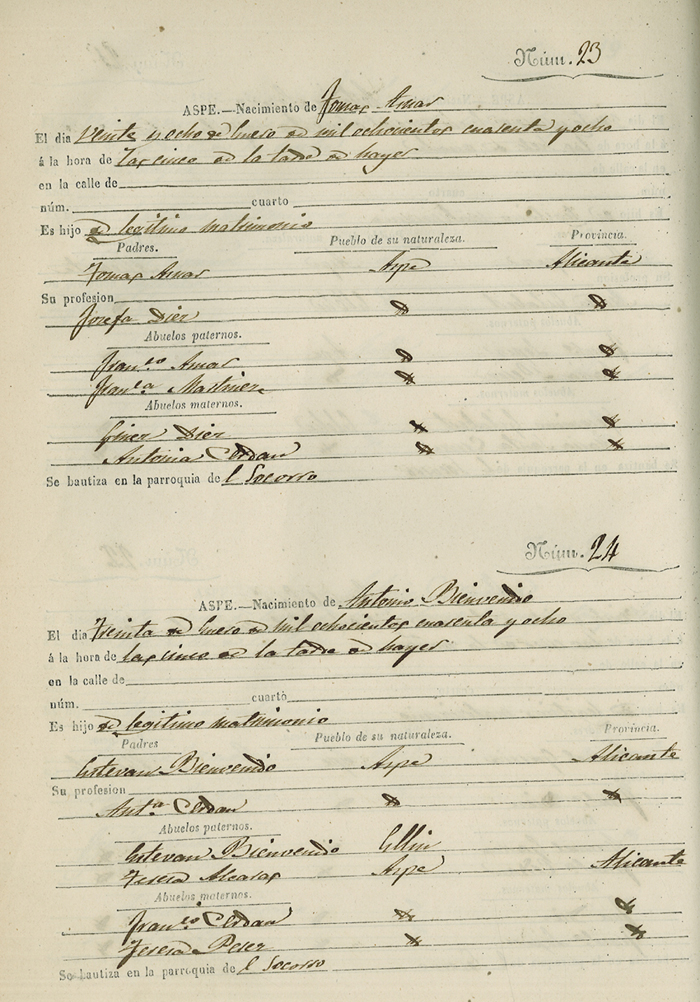 Núm. 23
ASPE.—Nacimiento de Tomas Amar
El dia Veinte y ocho de Enero de mil ochocientos cuarenta y ocho
á la hora de Las cinco de la tarde de hayer
en la calle de
núm. cuarto
Es hijo de legitimo matrimonio
Padres. Pueblo de su naturaleza. Provincia.
Tomas Amar Aspe Alicante
Su profesion
Josefa Dier
Abuelos paternos.
Fran.co Amar
Fran.ca Martinez
Abuelos maternos.
Giner Dier
Antonia Cerdan
Se bautiza en la parroquia de l Socorro
Núm. 24
ASPE.—Nacimiento de Antonio Bienvenido
El dia Treinta de Enero de mil ochocientos cuarenta y ocho
á la hora de las cinco de la tarde de hayer
en la calle de
núm. cuarto
Es hijo de legitimo matrimonio
Padres Pueblo de su naturaleza. Provincia.
Estevan Bienvenido Aspe Alicante
Su profesion
Ant.a Cerdan
Abuelos paternos.
Estevan Bienvenido Ellin
Teresa Alcaraz Aspe Alicante
Abuelos maternos.
Fran.co Cerdan
Teresa Perez
Se bautiza en la parroquia de l Socorro